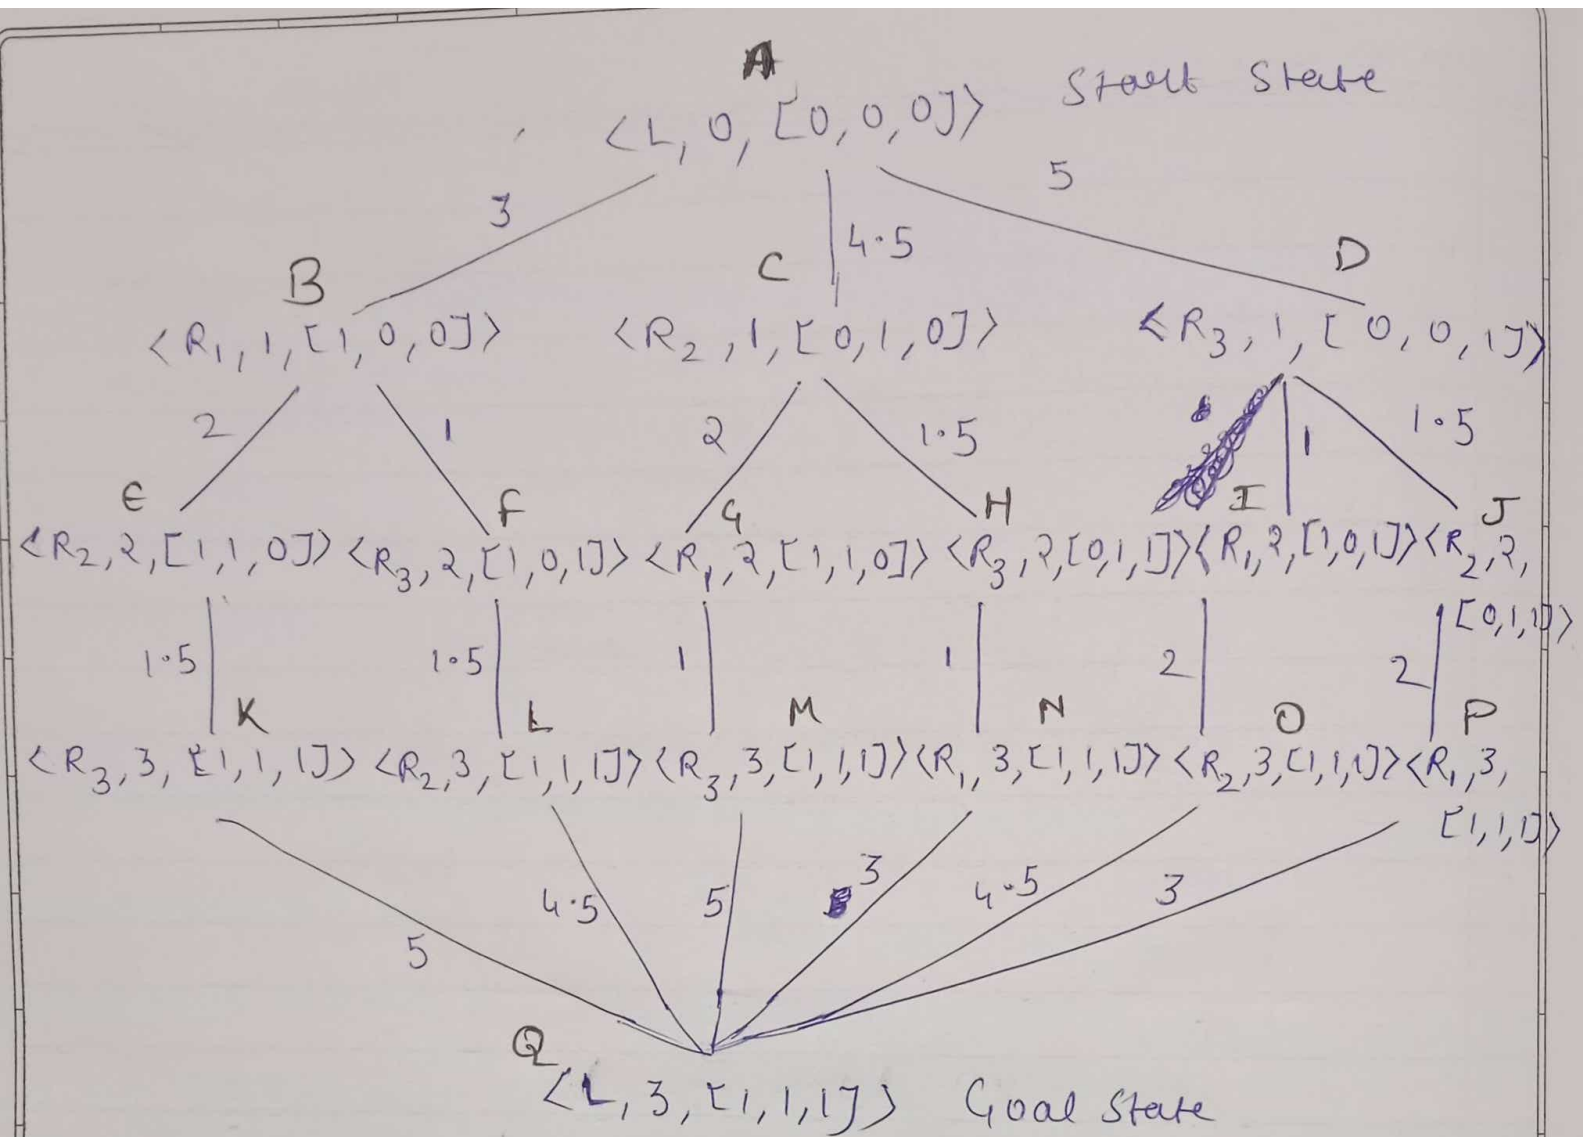 A
<L, 0, [0, 0, 0]> Start State
3 4.5 5
B C D
<R1, 1, [1, 0, 0]> <R2, 1, [0, 1, 0]> <R3, 1, [0, 0, 1]>
2 1 2 1.5 1 1.5
E F G H I J
<R2, 2, [1, 1, 0]> <R3, 2, [1, 0, 1]> <R1, 2, [1, 1, 0]> <R3, 2, [0, 1, 1]> <R1, 2, [1, 0, 1]> <R2, 2,
[0, 1, 1]>
1.5 1.5 1 1 2 2
K L M N O P
<R3, 3, [1, 1, 1]> <R2, 3, [1, 1, 1]> <R3, 3, [1, 1, 1]> <R1, 3, [1, 1, 1]> <R2, 3, [1, 1, 1]> <R1, 3,
[1, 1, 1]>
5 4.5 5 3 4.5 3
Q
<L, 3, [1, 1, 1]> Goal State